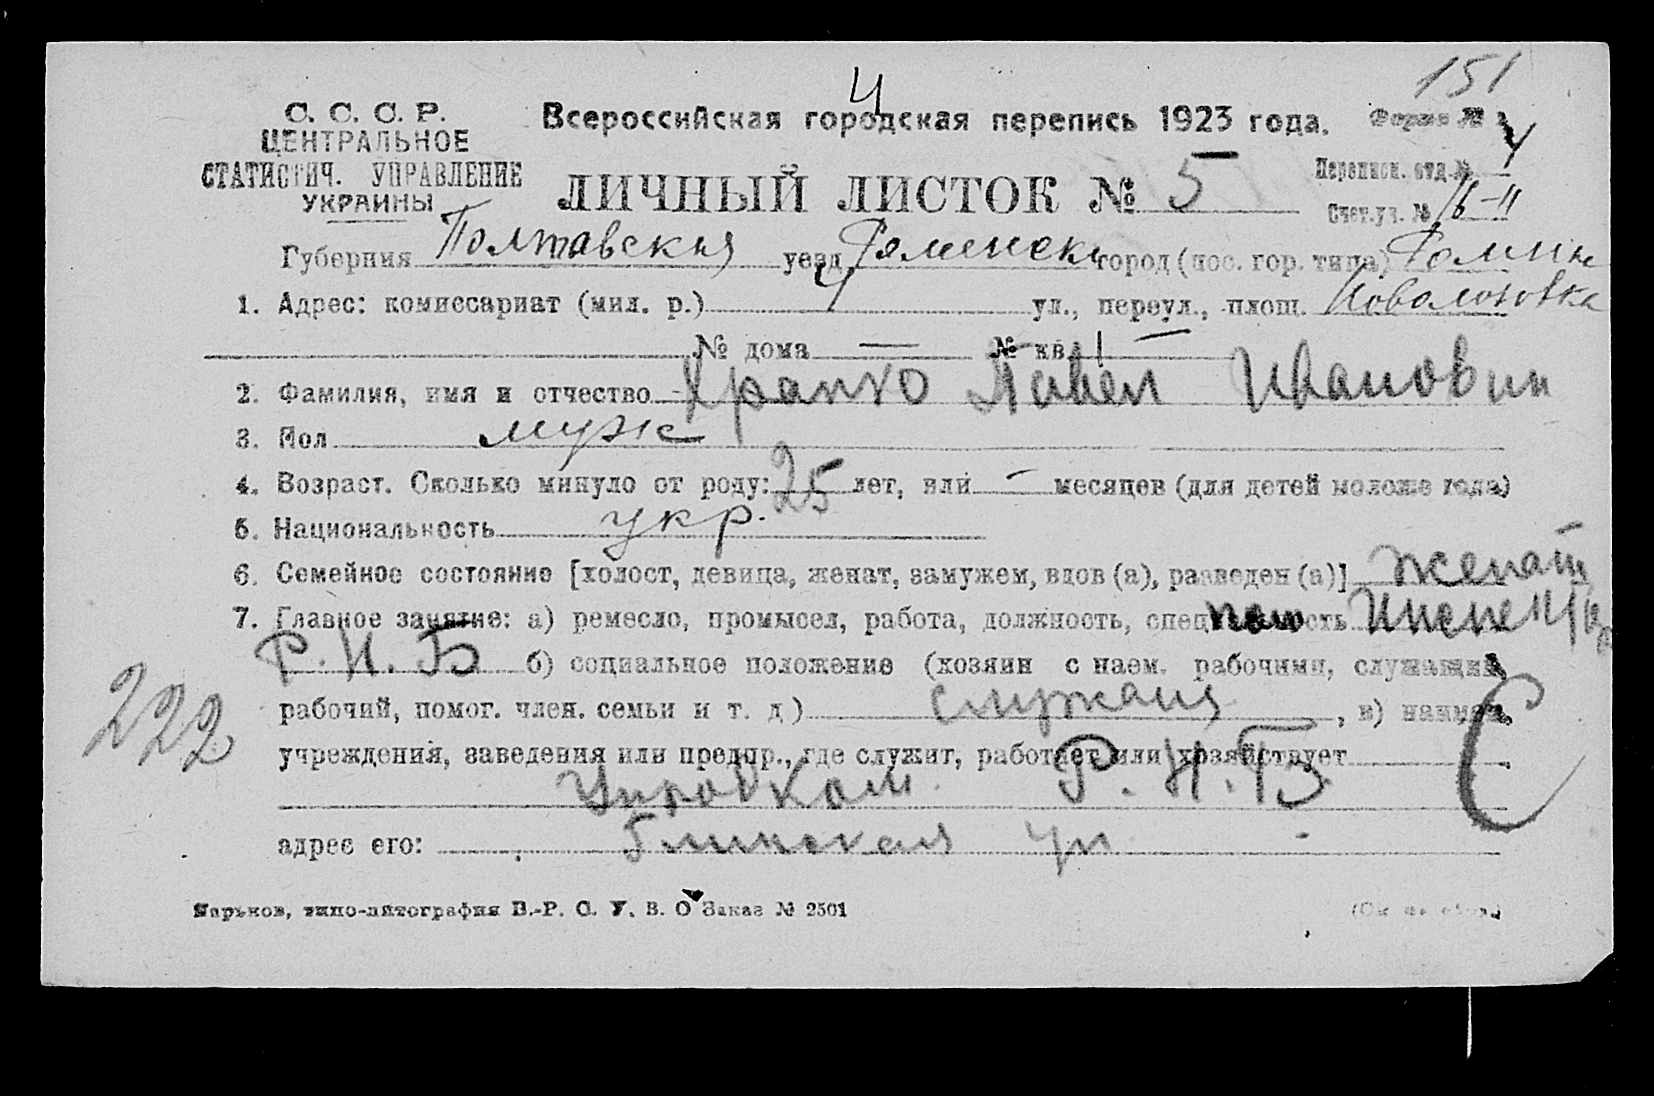 151
4
С. С. С. Р.
ЦЕНТРАЛЬНОЕ
СТАТИСТИЧ. УПРАВЛЕНИЕ
УКРАИНЫ
Всероссийская городская перепись 1923 года.
Форма №
ЛИЧНЫЙ ЛИСТОК № 5
Переписн. отд. № 4
Счет. уч. № 16-11
Губерния Полтавская уезд Роменск город (пос. гор. типа) Ромны
1. Адрес: комиссариат (мил. р.) 4 ул., переул., площ.
№ дома — № кв. 1 —
2. Фамилия, имя и отчество Храпко Павел Иванович
3. Пол муж
4. Возраст. Сколько минуло от роду: 25 лет, или — месяцев (для детей моложе года)
5. Национальность укр.
6. Семейное состояние [холост, девица, женат, замужем, вдов (а), разведен (а)] женат
7. Главное занятие: а) ремесло, промысел, работа, должность,
Р. И. Б б) социальное положение (хозяин с наем. рабочими, служащий,
рабочий, помог. член. семьи и т. д) служащ , в) наимен.
222
учреждения, заведения или предпр., где служит, работает или хозяйствует
С
Р. И. Б.
адрес его: Глинская ул
Харьков, типо-литография В.-Р. С. У. В. О Заказ № 2501